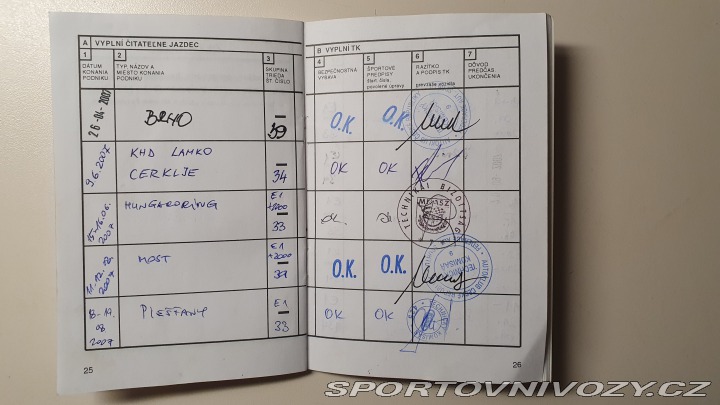 A VYPLNÍ ČITATEĽNE JAZDEC
1 2 3
DÁTUM KONANIA PODNIKU
TYP, NÁZOV A MIESTO KONANIA PODNIKU
SKUPINA TRIEDA ŠT. ČÍSLO
26-04-2007 BRNO — 39
9.6.2007 KHD LAMKO CERKLJE — 34
15-16.06. 2007 HUNGARORING E1 +2000 — 33
2007 MOST E1 +2000 — 37
08 2007 PIEŠŤANY E1 — 33
25
B VYPLNÍ TK
4 5 6 7
BEZPEČNOSTNÁ VÝBAVA
ŠPORTOVÉ PREDPISY
štart. čísla,
povolené úpravy
RAZÍTKO A PODPIS TK
prevzatie vozidla
DÔVOD PREDČAS. UKONČENIA
O.K. O.K.
OK OK
ok ok TECHNIKAI BIZOTTSÁG
O.K. O.K. AUTOKLUB TECHNICKÝ KOMISAŘ
OK OK
26
SPORTOVNIVOZY.CZ